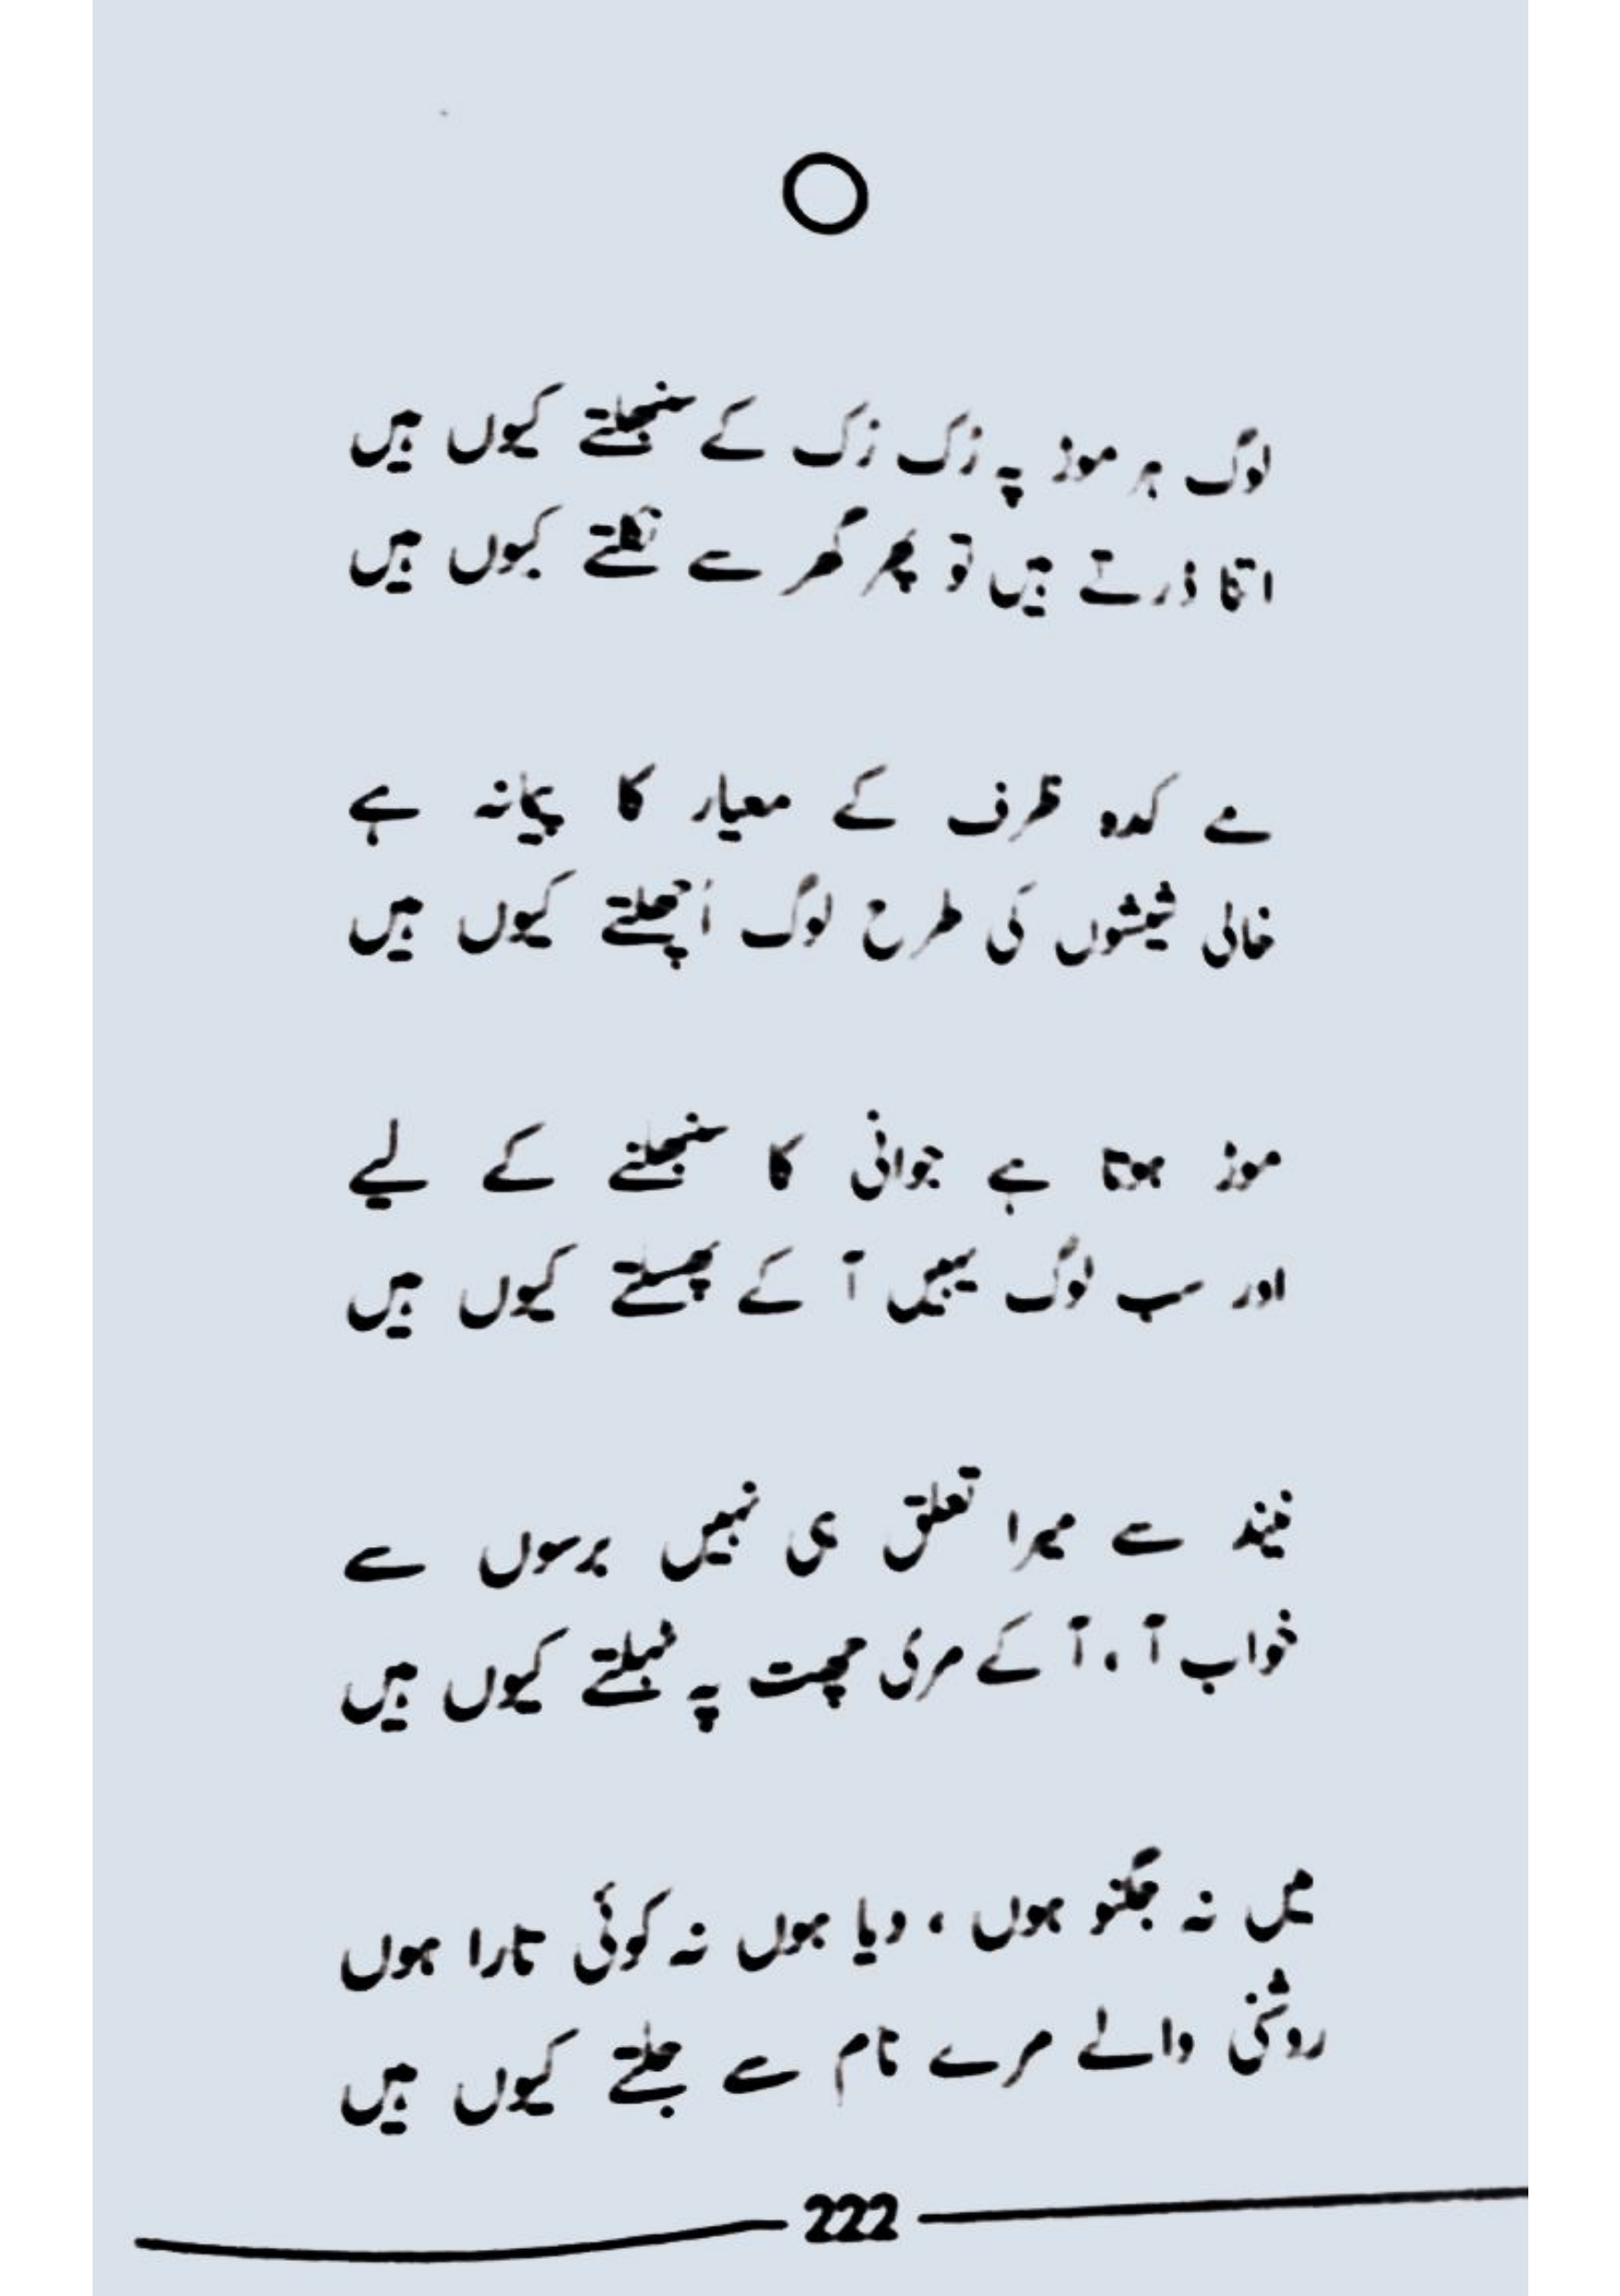 لوگ ہر موڑ پہ رُک رُک کے سنبھلتے کیوں ہیں
اتنا ڈرتے ہیں تو پھر گھر سے نکلتے کیوں ہیں
مے کدہ ظرف کے معیار کا پیمانہ ہے
خالی شیشوں کی طرح لوگ اُچھلتے کیوں ہیں
موڑ ہوتا ہے جوانی کا سنبھلنے کے لیے
اور سب لوگ یہیں آ کے پھسلتے کیوں ہیں
نیند سے میرا تعلق ہی نہیں برسوں سے
خواب آ، آ کے مری چھت پہ ٹہلتے کیوں ہیں
میں نہ جگنو ہوں، دیا ہوں نہ کوئی تارا ہوں
روشنی والے مرے نام سے جلتے کیوں ہیں
222